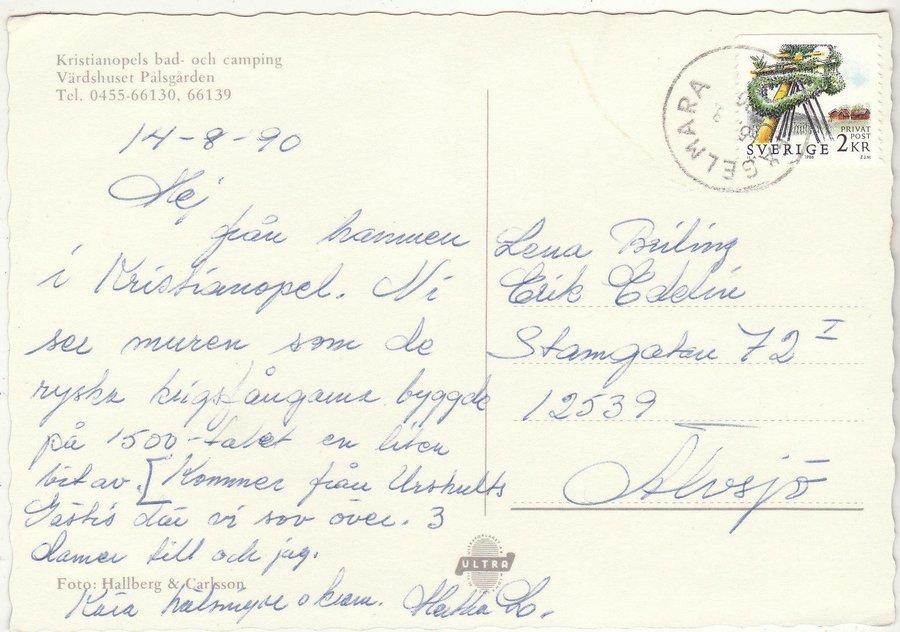 Kristianopels bad- och camping
Värdshuset Pålsgården
Tel. 0455-66130, 66139
14-8-90
Hej
från hamnen
i Kristianopel. Ni
ser muren som de
ryska krigsfångarna byggde
på 1500-talet en liten
bit av. [Kommer från Urshults
Gästis där vi sov över. 3
damer till och jag.
Foto: Hallberg & Carlsson
Kära hälsningar o kram.
ULTRA
SVERIGE
PRIVAT
POST
2 KR
1988
Lena Briling
Erik Edelin
Stamgatan 72 I
12539
Älvsjö